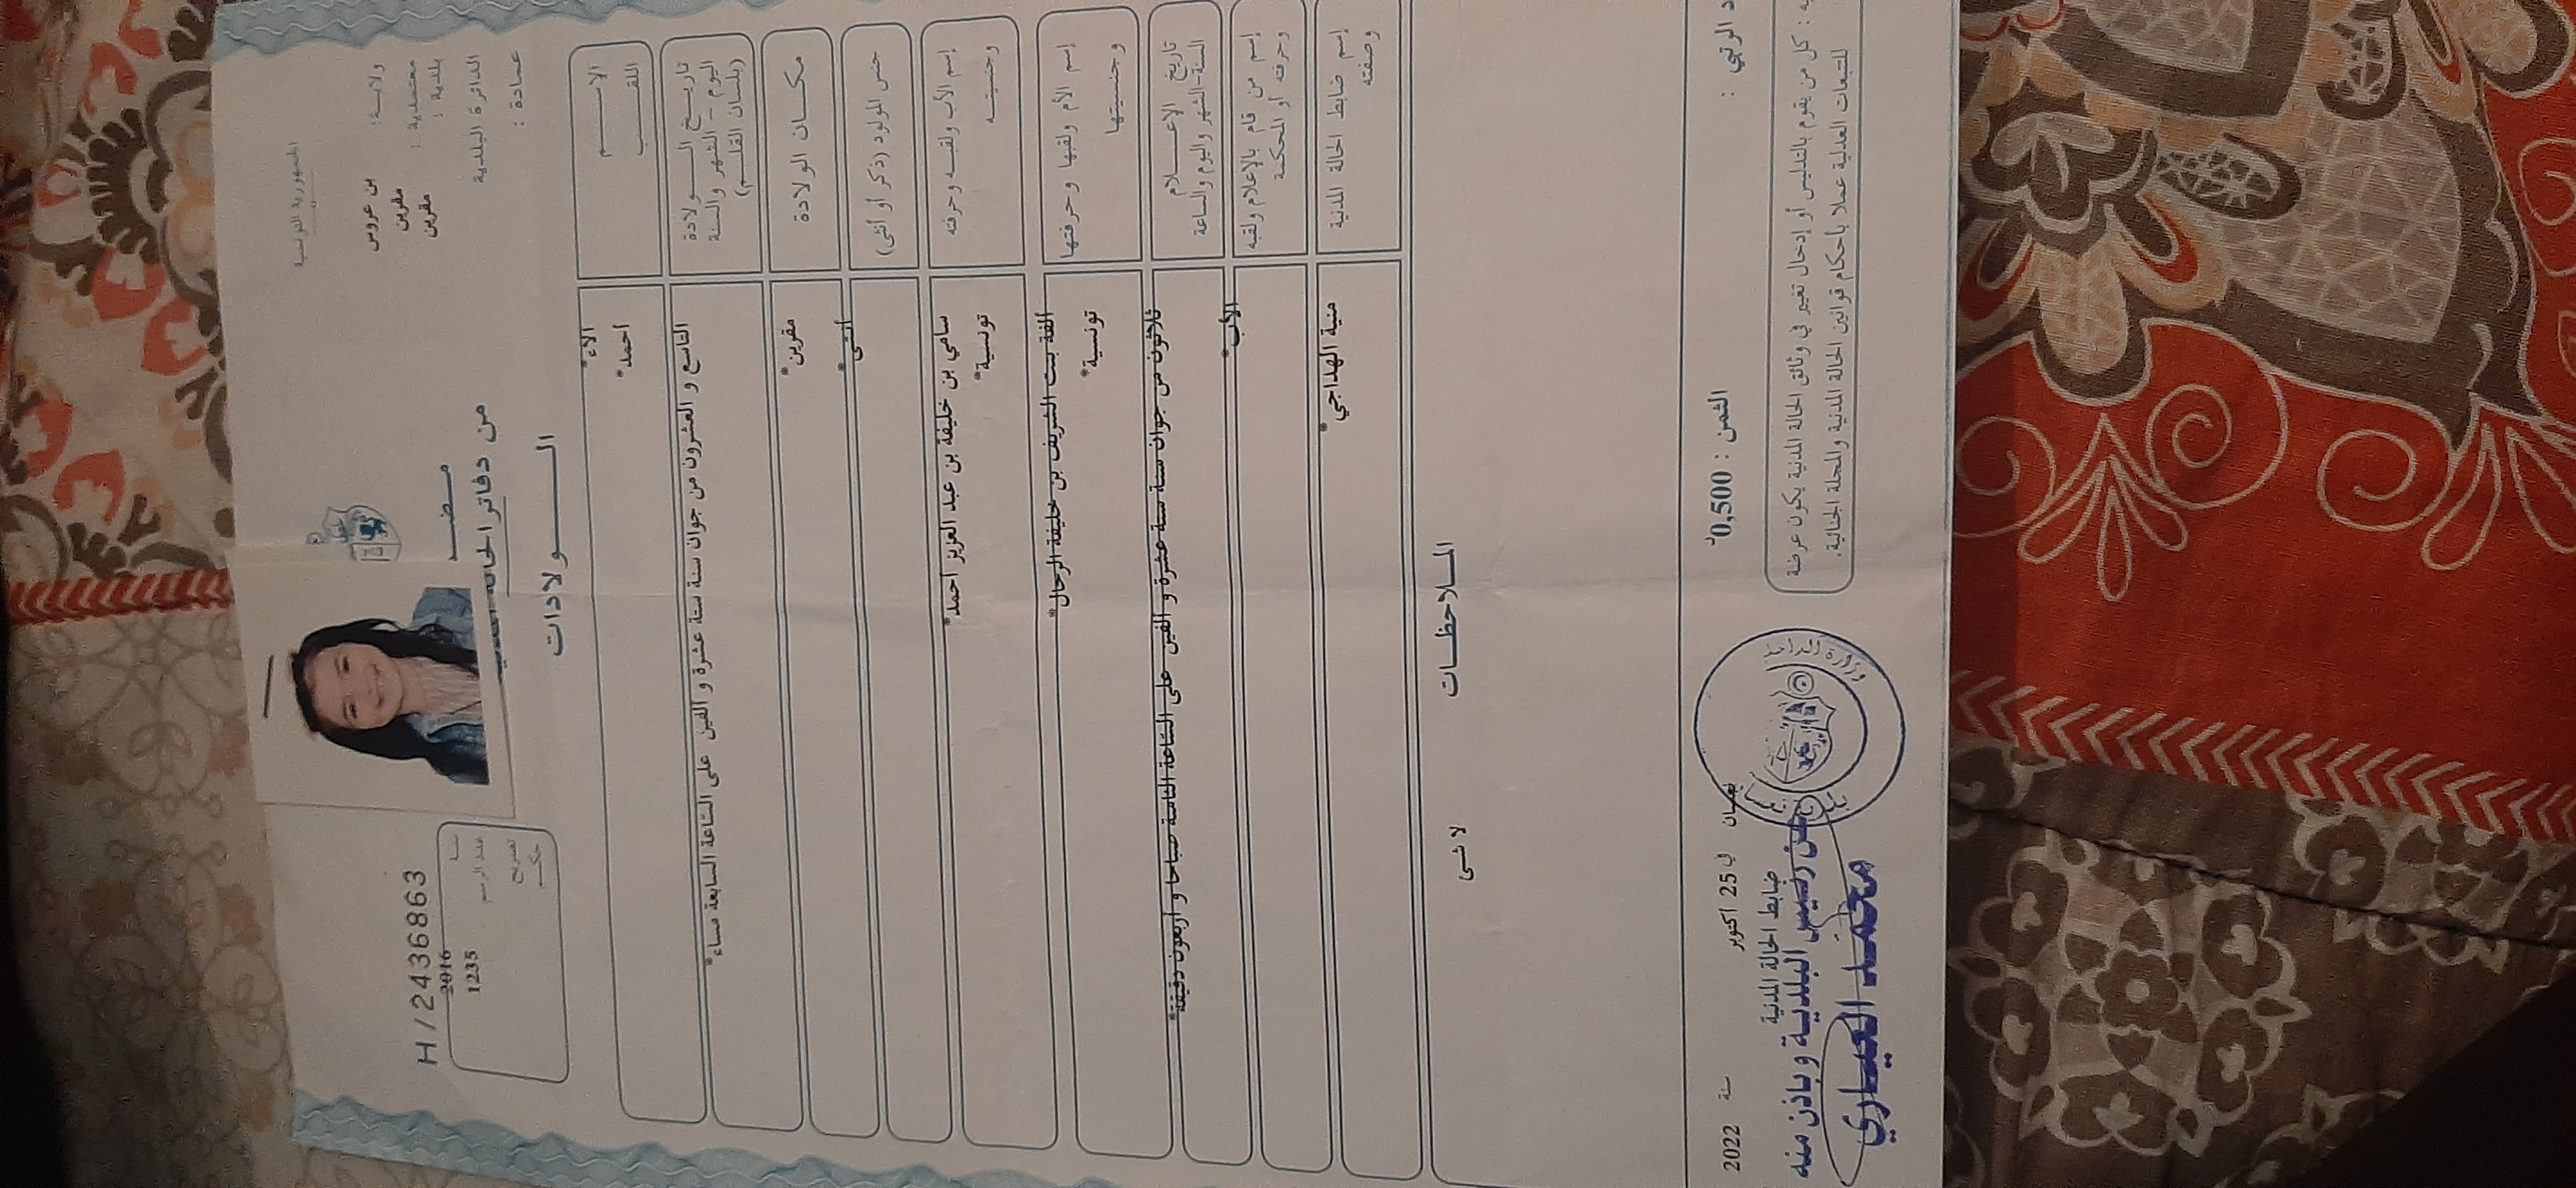 الجمهورية التونسية
ولاية: بن عروس
معتمدية : مقرين
بلدية : مقرين
الدائرة البلدية
عمادة :
H/2436863
سنة 2016
عدد الرسم 1235
تصريح
حكم
مضـــ
من دفاتر الحالة
الــــولادات
الاســـم الاء*
اللقـــب احمد*
تاريــخ الــولادة
اليوم - الشهر والسنة
(بلسان القلـم)
التاسع و العشرون من جوان سنة ستة عشرة و الفين على الساعة السابعة مساء*
مكــان الولادة مقرين*
جنس المولود (ذكر أو أنثى) أنثى*
إسم الأب ولقبـه وحرفته سامي بن خليفة بن عبد العزيز احمد*
وجنسيتـــه تونسية*
إسم الأم ولقبها وحرفتها الفة بنت الشريف بن خليفة الرحال*
وجنسيتها تونسية*
تاريخ الإعـــلام
السنة-الشهر واليوم والساعة
ثلاثون من جوان سنة ستة عشرة و الفين على الساعة الثامنة صباحا و أربعون دقيقة*
إسم من قام بالإعلام ولقبه الأب*
وحرفته أو المحكمة
إسم ضابط الحالة المدنية منية الهداجي*
وصفته
المــلاحظــات
لا شىء
د الرتبي :
الثمن : 0,500د
في 25 اكتوبر سنة 2022
ضابط الحالة المدنية
عن رئيس البلدية و باذن منه
محمد العياري
ه : كل من يقوم بالتدليس أو إدخال تغيير في وثائق الحالة المدنية يكون عرضة
للتبعات العدلية عملا بأحكام قوانين الحالة المدنية والمجلة الجنائية.